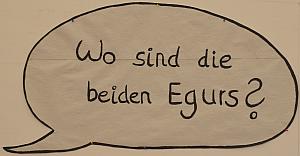 Wo sind die
beiden Egurs?